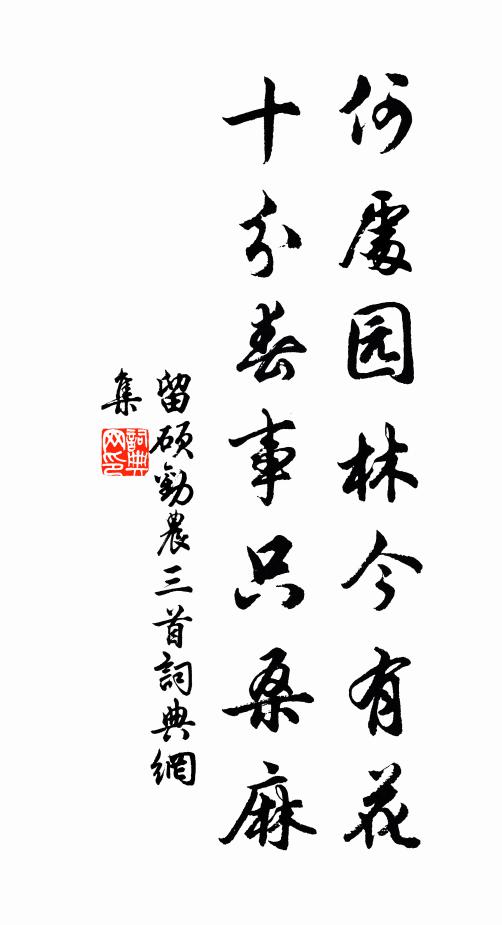 何處园林今有花
十分春事只桑麻
留硕勸農三首詞典網
集
詞典
网印